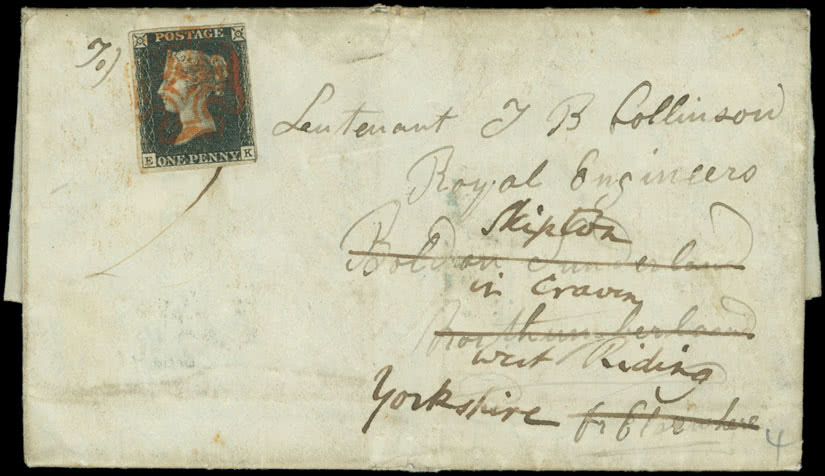 To)
POSTAGE
E ONE PENNY K
Leutenant T B Collinson
Royal Engineers
Skipton
Boldon Sunderland
in Craven
Northumberland
West Riding
Yorkshire or Elsewhere
4